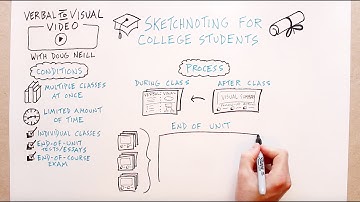 VERBAL TO VISUAL
VIDEO
WITH DOUG NEILL
SKETCHNOTING FOR
COLLEGE STUDENTS
CONDITIONS
MULTIPLE CLASSES
AT ONCE
LIMITED AMOUNT
OF TIME
INDIVIDUAL CLASSES
END-OF-UNIT
TESTS/ESSAYS
END-OF-COURSE
EXAM
PROCESS
DURING CLASS
AFTER CLASS
END OF UNIT